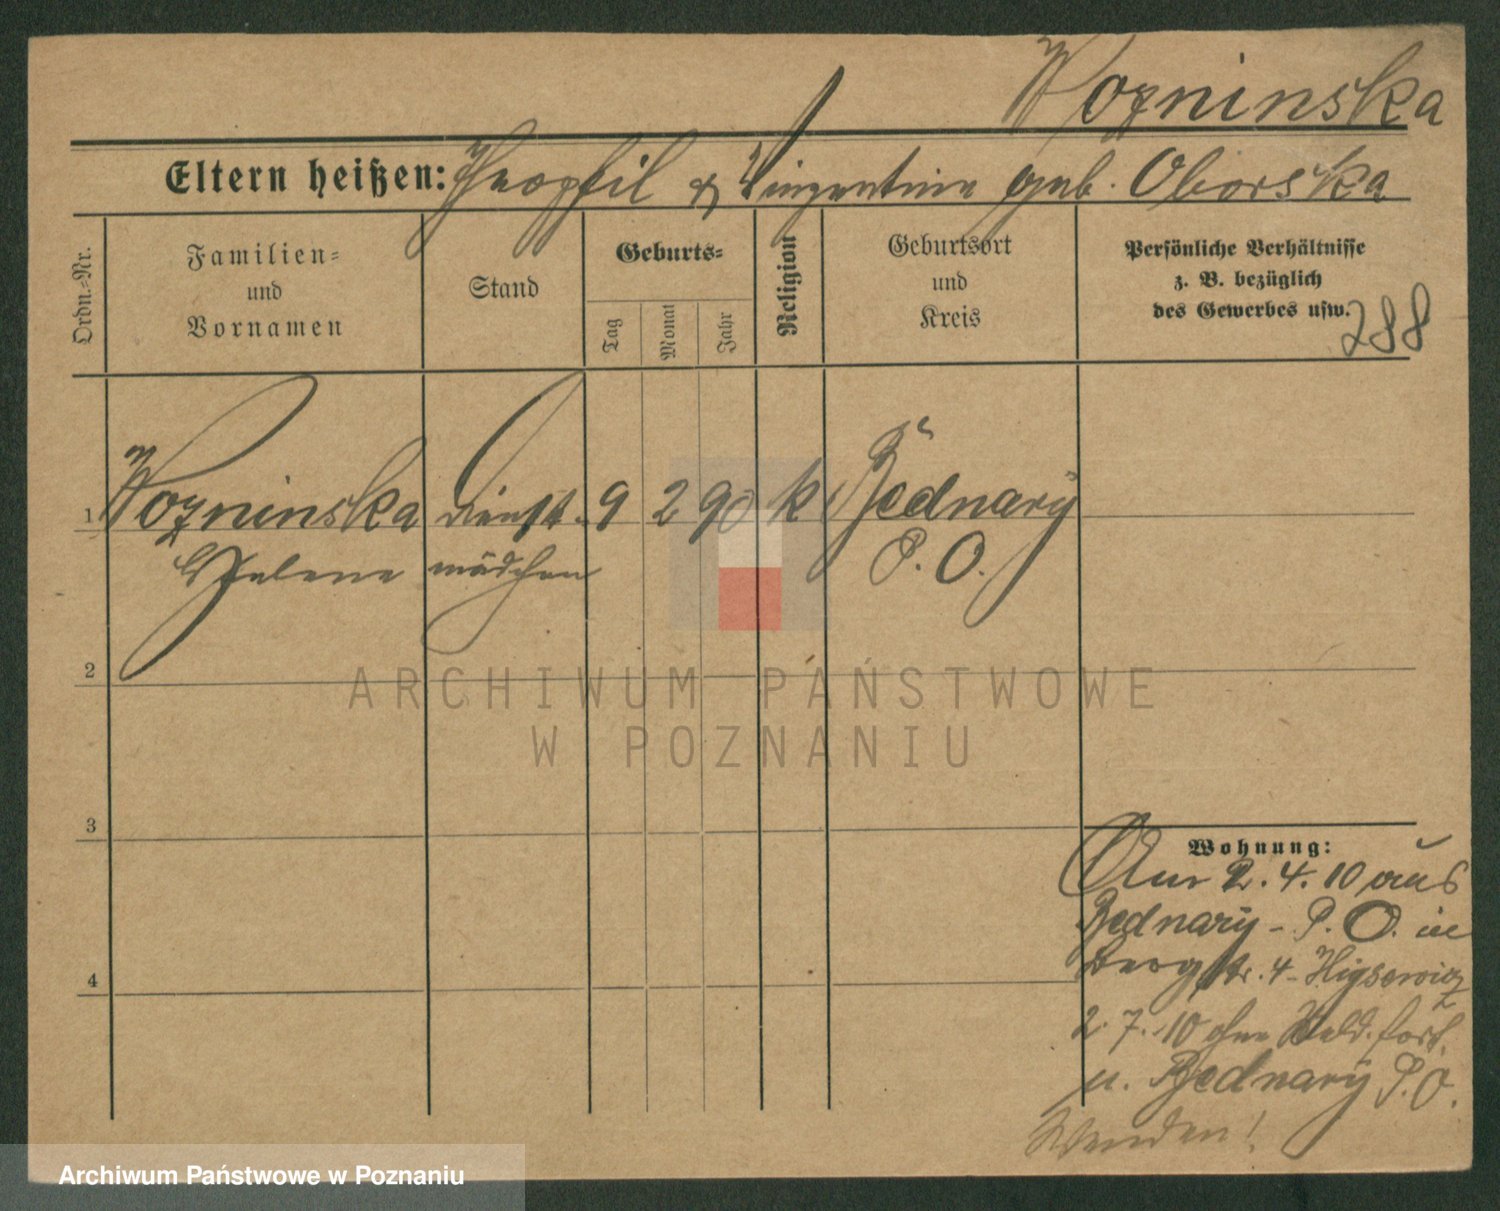 Wozninska
Eltern heißen: Theophil & Vinzentine geb. Oborska
Ordn.=Nr.
Familien=
und
Vornamen
Stand
Geburts=
Tag
Monat
Jahr
Religion
Geburtsort
und
Kreis
Persönliche Verhältnisse
z. B. bezüglich
des Gewerbes usw.
288
1 Wozninska Dienst- 9 2 90 k Bednary
Helene mädchen P. O.
2
3
4
Wohnung:
Am 2. 4. 10 aus
Bednary - P. O. in
Bergstr. 4
2. 7. 10 ohne Meld. fort.
n. Bednary P. O.
Wenden!
ARCHIWUM PAŃSTWOWE
W POZNANIU
Archiwum Państwowe w Poznaniu